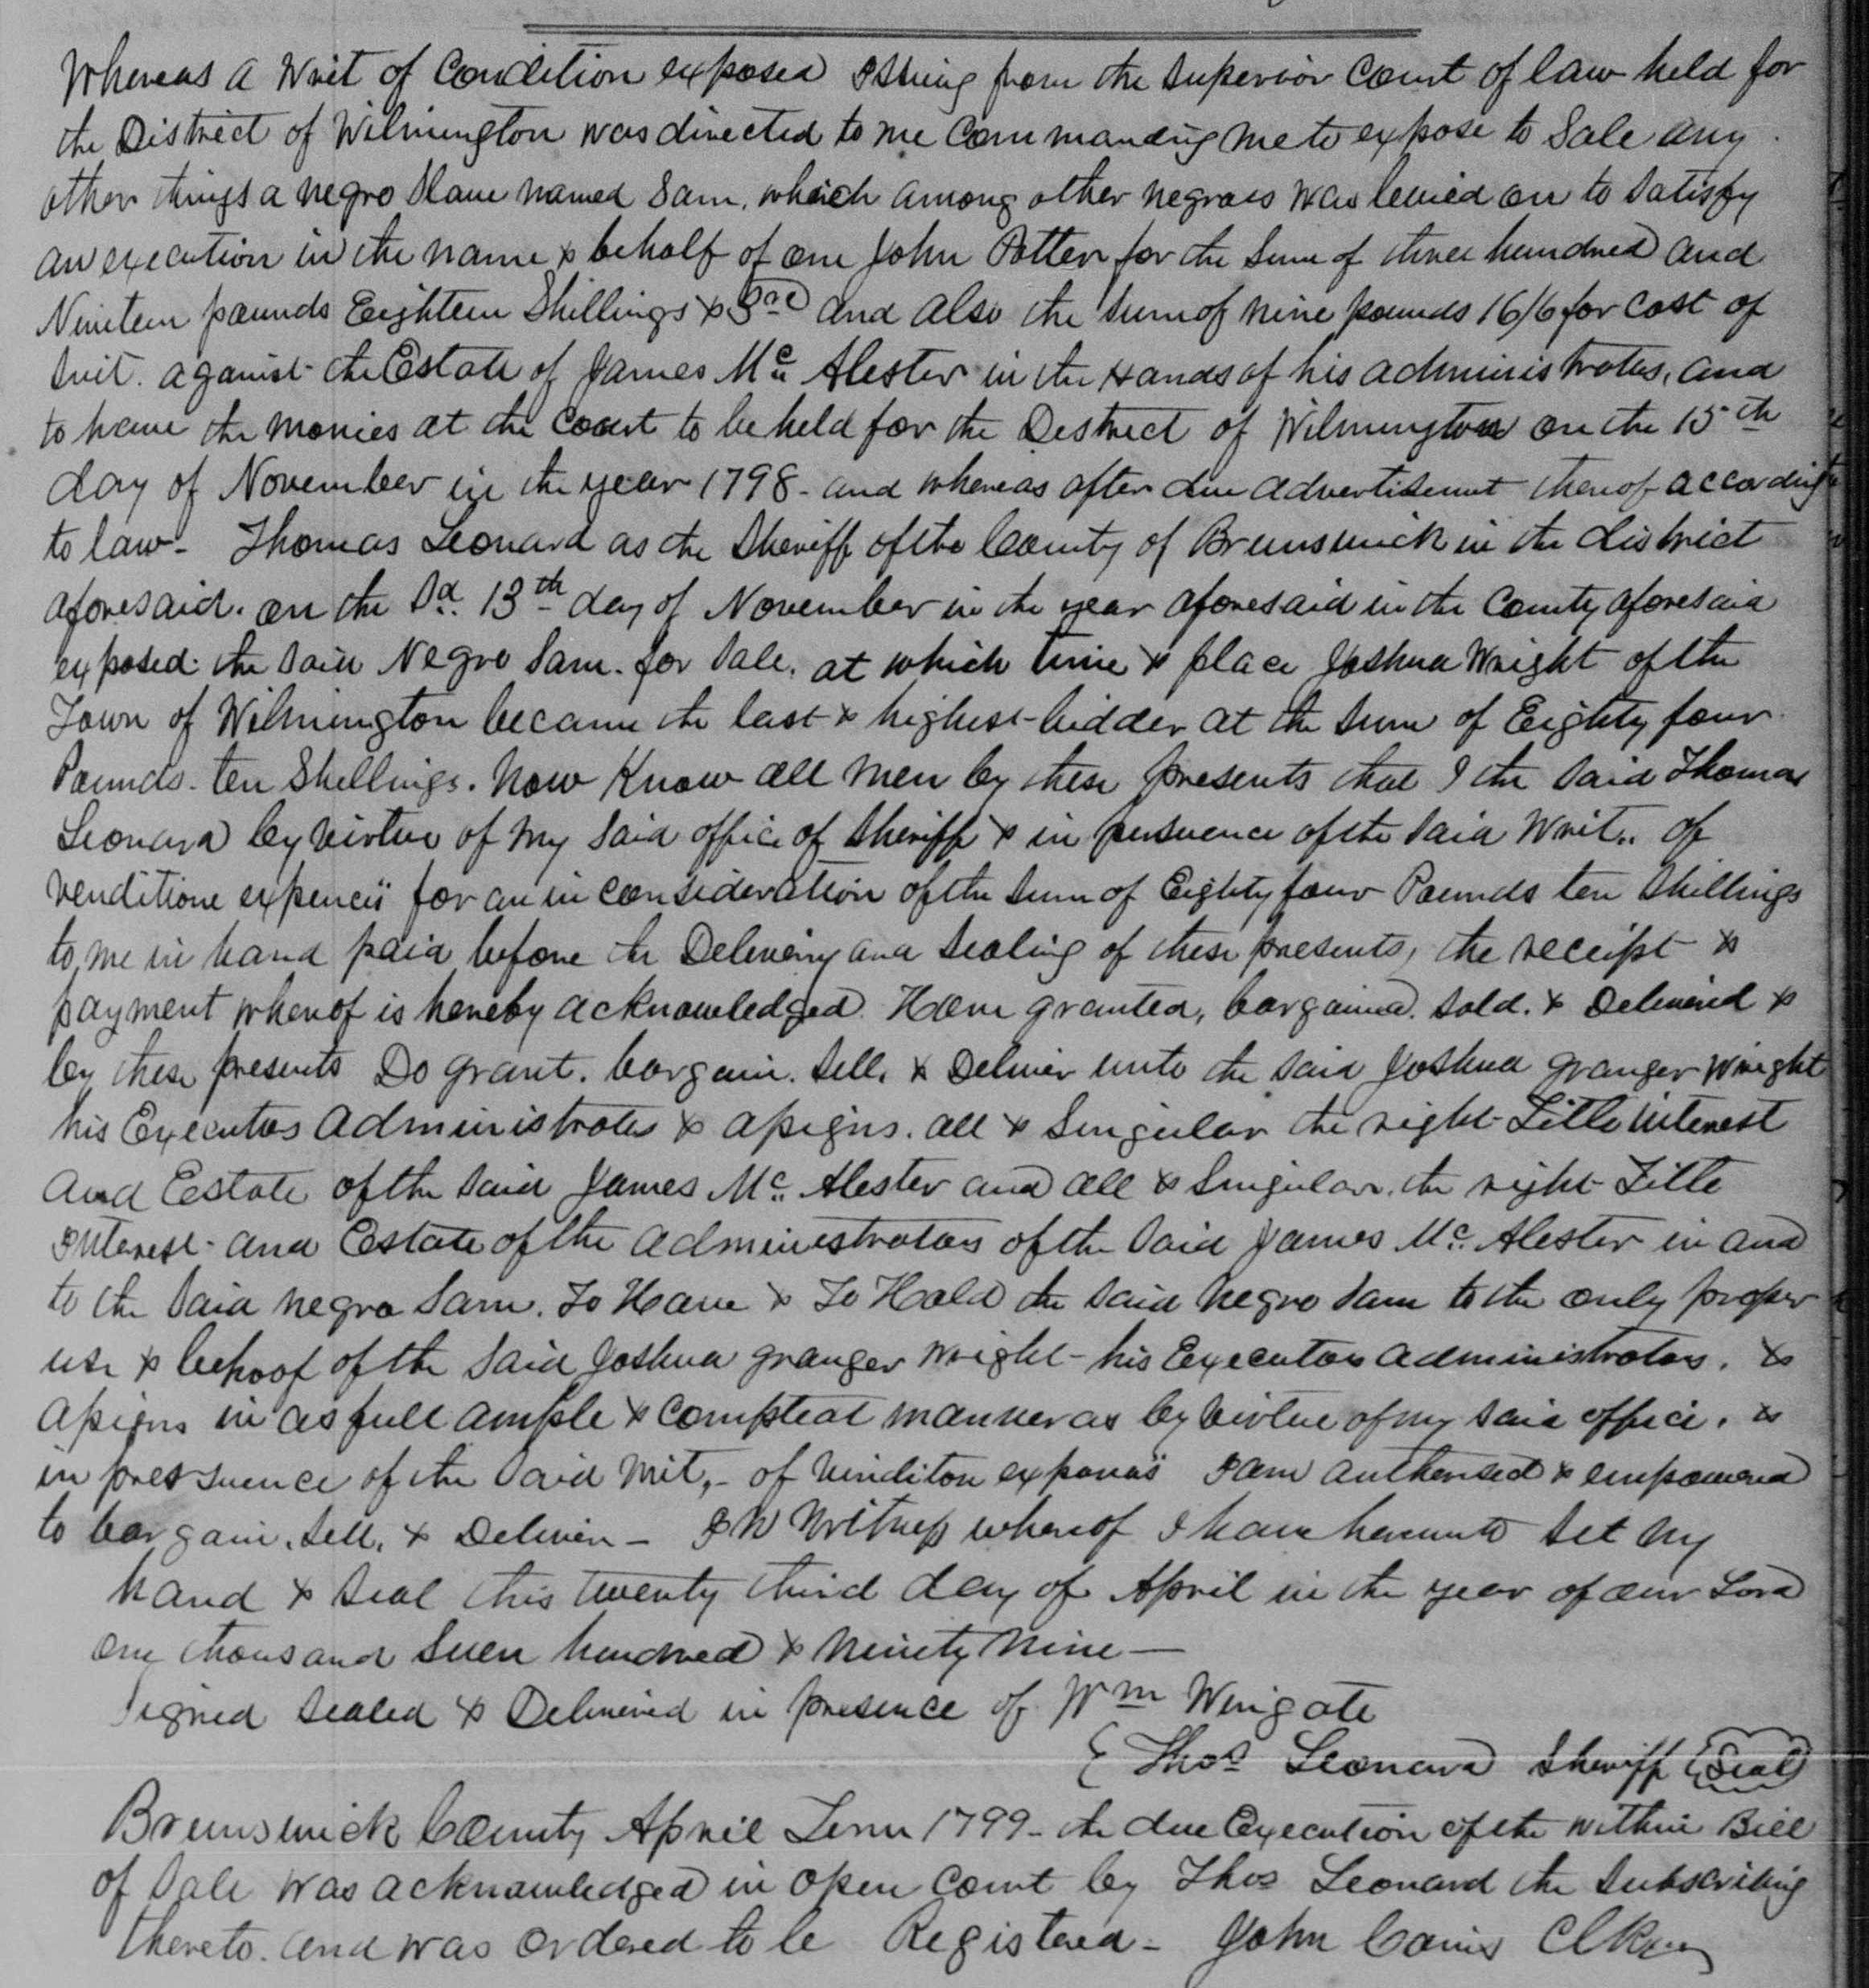 Whereas a Writ of Condition exposed Issuing from the Superior Court of law held for
the District of Wilmington was directed to me Commanding me to expose to Sale any
other things a negro Slave named Sam, which among other negroes was levied on to Satisfy
an execution in the name & behalf of one John Potter for the Sum of three hundred and
Nineteen pounds Eighteen Shillings & and also the Sum of nine pounds 16/6 for Cost of
Suit. against the Estate of James Mc Alester in the Hands of his administrators, and
to have the monies at the Court to be held for the District of Wilmington on the 15th
day of November in the year 1798 - and whereas after due advertisement thereof according
to law - Thomas Leonard as the Sheriff of the County of Brunswick in the district
aforesaid. on the Sd. 13th day of November in the year aforesaid in the County aforesaid
exposed the Said Negro Sam. for Sale. at which time & place Joshua Wright of the
Town of Wilmington became the last & highest bidder at the Sum of Eighty four
Pounds - ten Shellings. Now Know all men by these presents that I the Said Thomas
Leonard by virtue of my Said office of Sheriff & in persuence of the Said Writ.. of
venditione expencii for an in consideration of the Sum of Eighty four Pounds ten Shillings
to me in hand paid before the Delivery and Sealing of these presents, the receipt &
payment whereof is hereby acknowledged Have granted, bargained. Sold. & Delivered &
by these presents Do grant. bargain. Sell. & Deliver unto the Said Joshua Granger Wright
his Executors Administrators & assigns. all & Singular the right Title interest
and Eestate of the Said James Mc. Alester and all & Singular. the right Title
Interest - and Estate of the Administrators of the Said James Mc. Alester in and
to the Said negro Sam. To Have & To Hold the Said Negro Sam to the only proper
use & behoof of the Said Joshua Granger Wright - his Executors Administrators. &
Assigns in as full ample & compleat manner as by virtue of my Said office. &
in pressuence of the Said Writ, - of vinditon exponas I am Authorised & empowered
to bargain. Sell. & Deliver - IN Witness whereof I have hereunto Set my
hand & Seal this twenty third day of April in the year of our Lord
one thousand Seven hundred & Ninety Nine -
Signed Sealed & Delivered in presence of Wm Wingate
Thos Leonard Sheriff (Seal)
Brunswick County April Term 1799 - the due Execution of the within Bill
of Sale was acknowledged in open Court by Thos Leonard the Subscribing
thereto. and was ordered to be Registered - John Cains